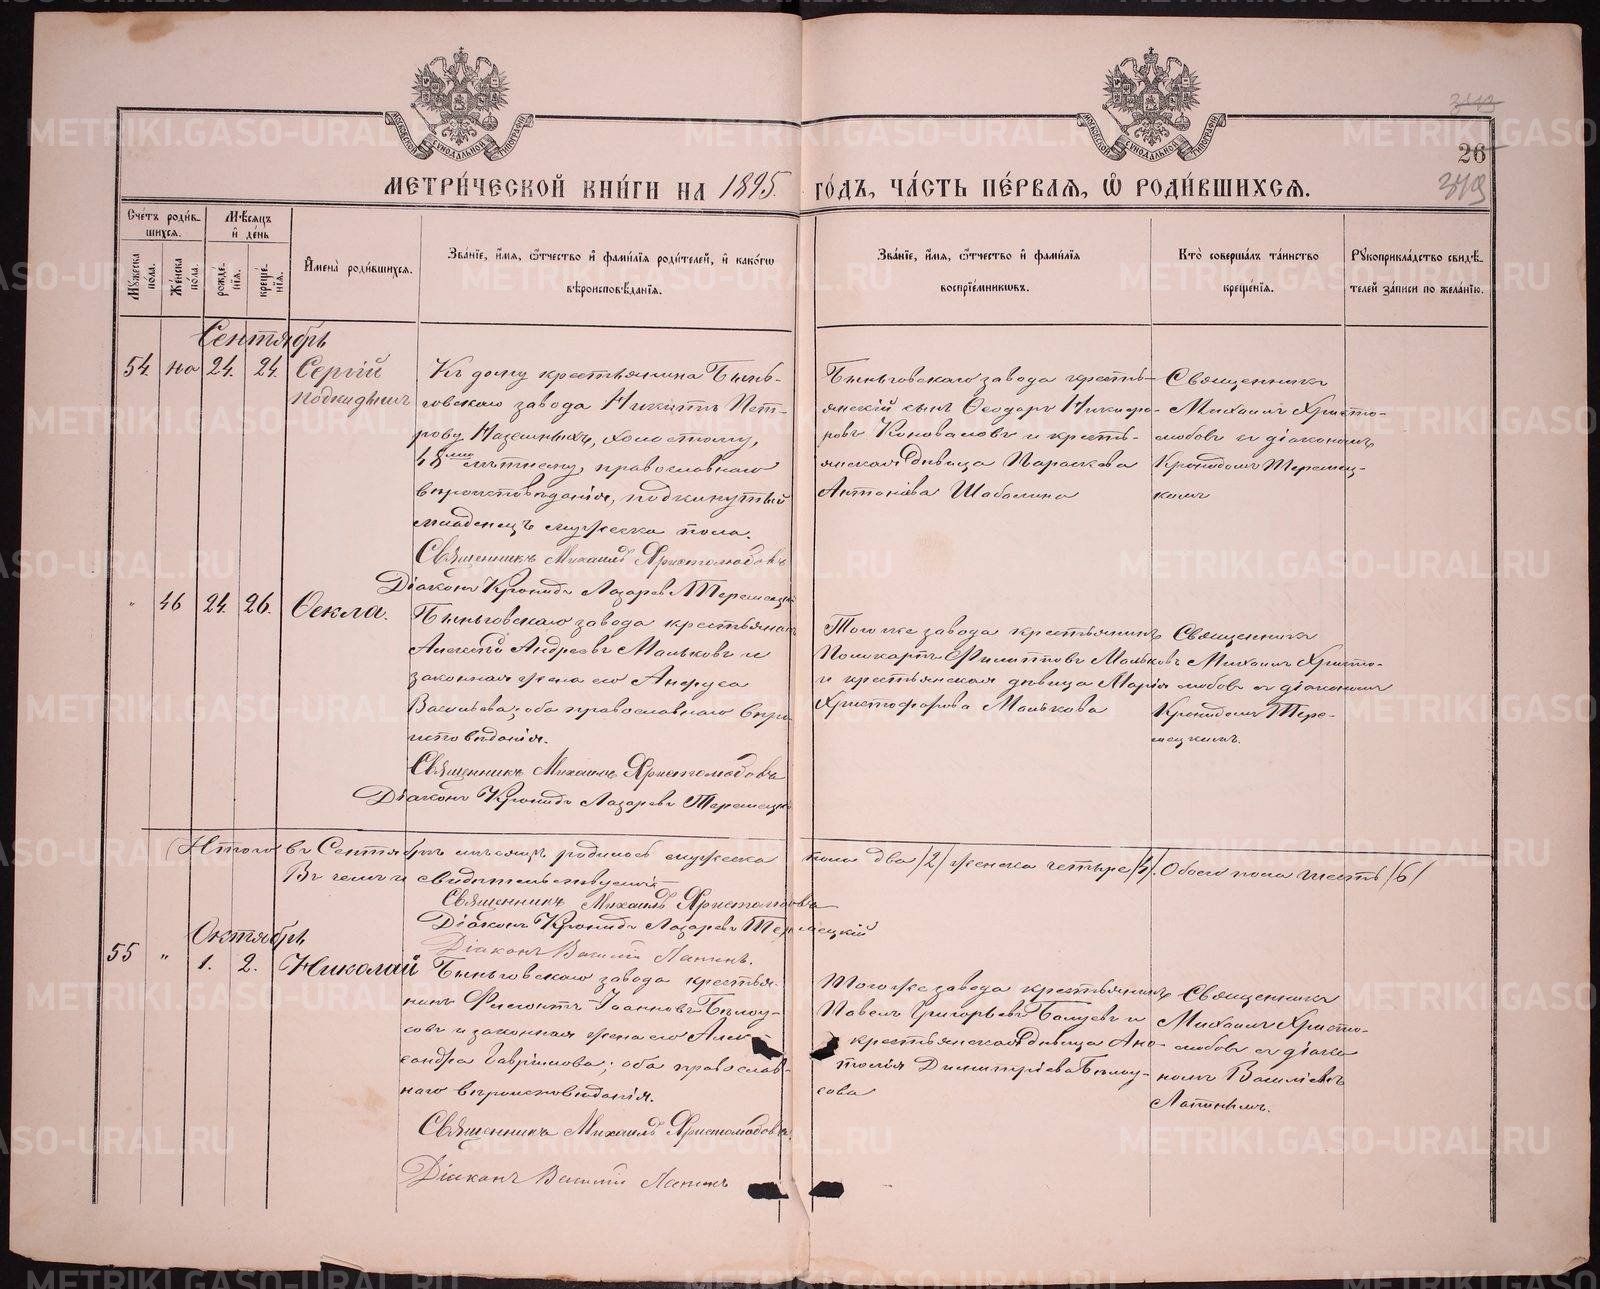 343
26
349
МЕТРИ́ЧЕСКОЙ КНИ́ГИ НА 1895 ГО́ДЪ, ЧА́СТЬ ПЕ́РВАЯ, Ѿ РОДИ́ВШИХСЯ.
Сче́тъ роди́в-
шихся.
Мꙋ́жеска по́ла.
Же́нска по́ла.
Мѣ́сяцъ и҆ де́нь
рожде́-
нїя.
креще́-
нїя.
И҆мена̀ роди́вшихся.
Зва́нїе, и҆́мя, ѻ҆́тчество и҆ фами́лїя роди́телей, и҆ како́гѡ
вѣроисповѣ́данїя.
Зва́нїе, и҆́мя, ѻ҆́тчество и҆ фами́лїя
воспрїе́мникѡвъ.
Кто̀ соверша́лъ та́инство
креще́нїя.
Рꙋкоприкла́дство свидѣ́-
телей за́писи по жела́нїю.
Сентябрь
54. 24. 24. Сергій
подкидышъ
Къ дому крестьянина Бынь-
говскаго завода Никиты Пет-
рову Назейныхъ, холостому,
48 лѣтнему, православнаго
вѣроисповѣданія, подкинутый
младенецъ мужеска пола.
Священникъ Михаилъ Христолюбовъ
Діаконъ Кронидъ Лазаревъ Терешецкій
Быньговскаго завода кресть-
янскій сынъ Ѳеодоръ Никифо-
ровъ Коноваловъ и кресть-
янская дѣвица Параскева
Антонова Шабалина
Священникъ
Михаилъ Христо-
любовъ съ діакономъ
Кронидомъ Терешец-
кимъ
" 46 24. 26. Ѳекла.
Быньговскаго завода крестьянинъ
Алексѣй Андреевъ Мальковъ и
законная жена его Анфуса
Васильева; оба православнаго вѣро-
исповѣданія.
Священникъ Михаилъ Христолюбовъ
Діаконъ Кронидъ Лазаревъ Терешецкій
Того же завода крестьянинъ
Поликарпъ Филипповъ Мальковъ
и крестьянская дѣвица Марія
Христофорова Малькова
Священникъ
Михаилъ Христо-
любовъ съ діакономъ
Кронидомъ Тере-
шецкимъ.
Итого въ Сентябрѣ мѣсяцѣ родилось мужеска пола два /2/ женска четыре /4/. Обоего пола шесть /6/
Въ чемъ и свидѣтельствуемъ:
Священникъ Михаилъ Христолюбовъ
Діаконъ Кронидъ Лазаревъ Терешецкій
Діаконъ Василій Лапинъ.
Октябрь
55 " 1. 2. Николай
Быньговскаго завода крестья-
нинъ Филиппъ Іоанновъ Бѣлоу-
совъ и законная жена его Алек-
сандра Гаврилова; оба православ-
наго вѣроисповѣданія.
Священникъ Михаилъ Христолюбовъ.
Діаконъ Василій Лапинъ
Того же завода крестьянинъ
Павелъ Григорьевъ Балуевъ и
крестьянская дѣвица Ана-
толія Димитріева Бѣлоу-
сова
Священникъ
Михаилъ Христо-
любовъ съ діако-
номъ Василіемъ
Лапинымъ.